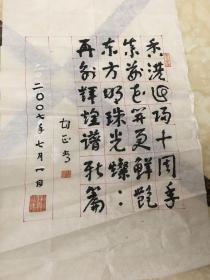 香港回归十周年
紫荆花开更鲜艳
东方明珠光灿灿
再创辉煌谱新篇
胡正书
二〇〇七年七月一日